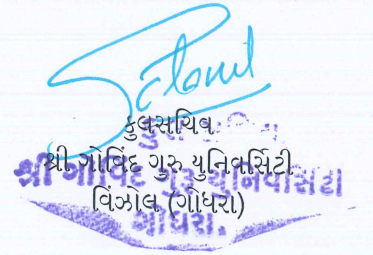 કુલસચિવ
શ્રી ગોવિંદ ગુરુ યુનિવર્સિટી
વિંઝોલ (ગોધરા)
શ્રી ગોવિંદ ગુરુ યુનિવર્સિટી
ગોધરા.